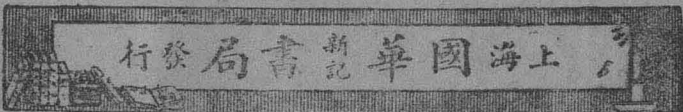 上海國華新記書局發行